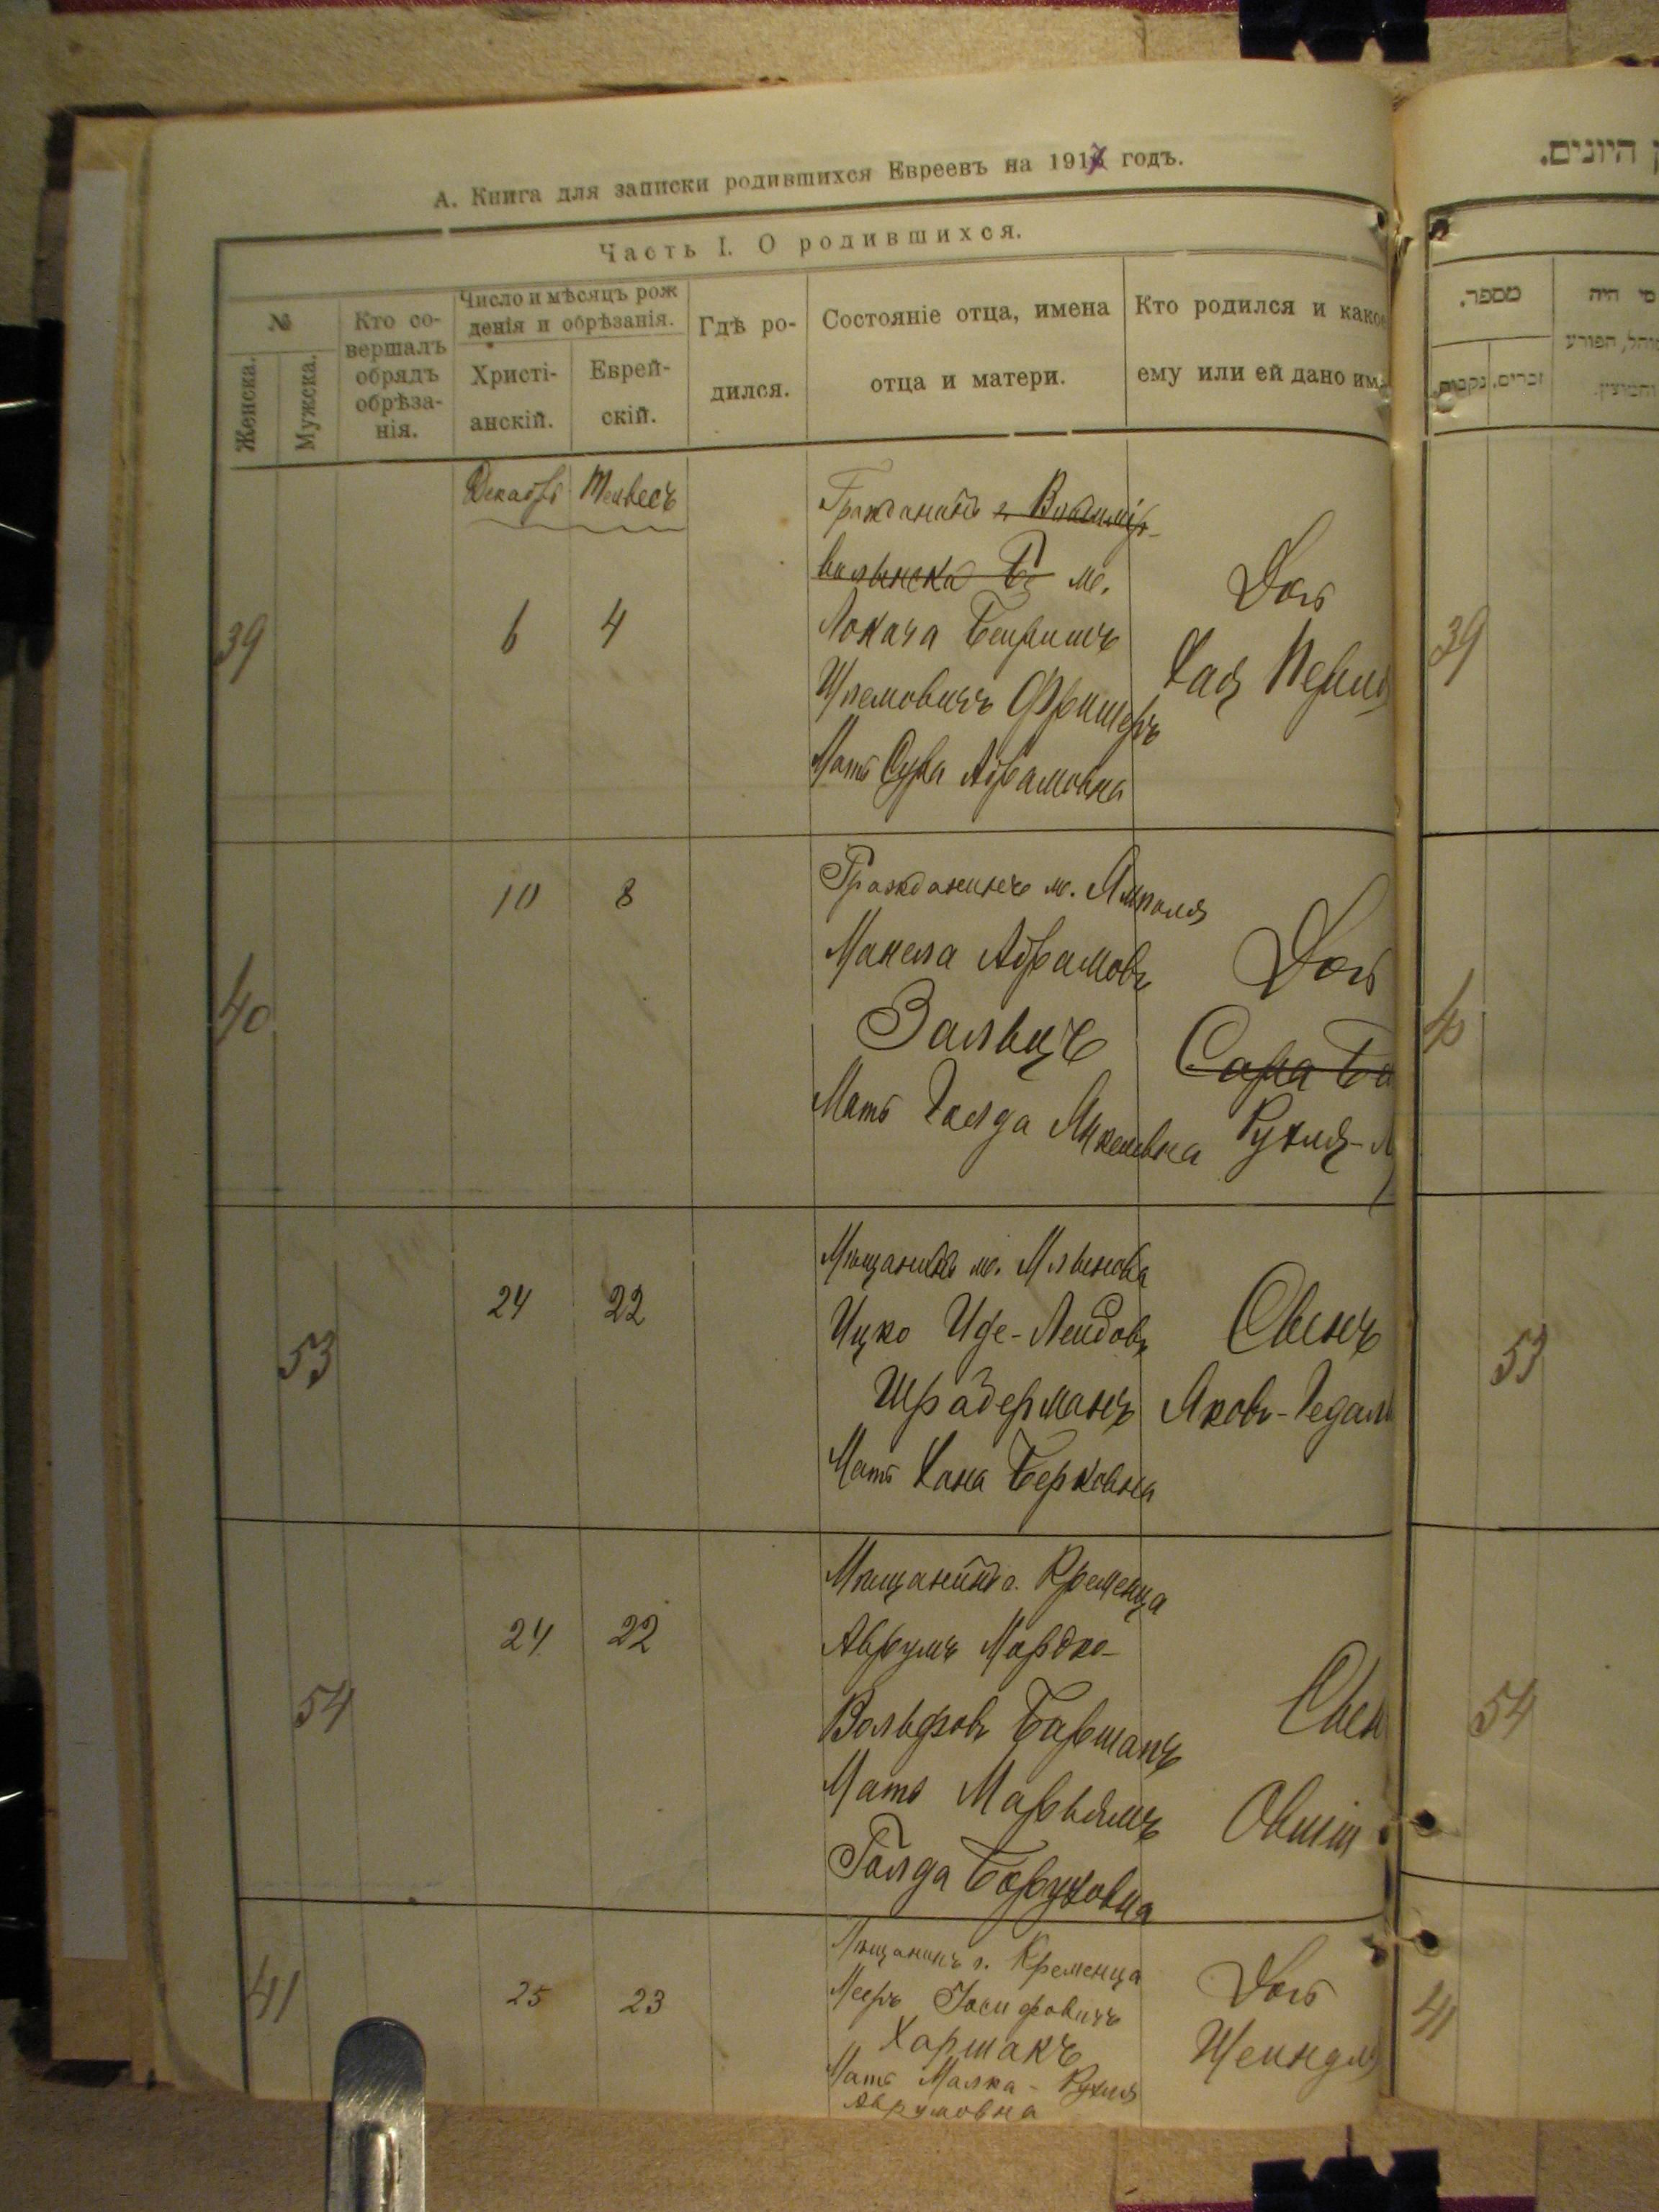 А. Книга для записки родившихся Евреевъ на 1917 годъ.
ן היונים.
Часть I. О родившихся.
№
Женска.
Мужска.
Кто со-
вершалъ
обрядъ
обрѣза-
нія.
Число и мѣсяцъ рож
денія и обрѣзанія.
Христі-
анскій.
Еврей-
скій.
Гдѣ ро-
дился.
Состояніе отца, имена
отца и матери.
Кто родился и какое
ему или ей дано им
מספר.
זכרים.
נקבות.
מי היה
Декабрь Тейвесъ
39
6 4
Гражданинъ г. Владимір-
волынска м.
Локача Бейришъ
Шлемовичъ Фришеръ
Мать Сура Абрамовна
Дочь
Хая Перля
39
40
10 8
Гражданинъ м. Ямполя
Манела Абрамовъ
Зальцъ
Мать Голда Янкелевна
Дочь
Сара Ба
Рухля-
40
53
24 22
Мѣщанинъ м. Млынова
Ицко Иде-Лейбовъ
Шрадерманъ
Мать Хана Берковна
Сынъ
Яковъ-Гедал
53
54
24 22
Мѣщанинъ г. Кременца
Аврумъ Мордко-
Вольфовъ Баршапъ
Мать Марьямъ
Голда Боруховна
Сын
Овшій
54
41
25 23
Мѣщанинъ г. Кременца
Мееръ Іосифовичъ
Харшакъ
Мать Малка-Рухля
Аврумовна
Дочь
Шейндля
41